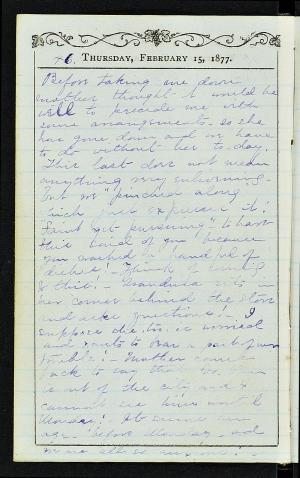 +6. THURSDAY, FEBRUARY 15, 1877.
Before taking me down
mother thought it would be
well to provide me with
some arrangements. so she
has gone down and we have
to do without her to-day.
This last does not mean
anything very
but we "pinched along
inch
"Faint yet pursuing" to have
this kind of you because
you worked a hand ful of
Think of
& this! - Grandma sits in
her corner behind the stove
and asks questions! - I
suppose she, too, is worried
and wants to bear a part of our
trouble! - Mother comes
back to say that Dr.
is out of the city and I
cannot see him until
Monday! It seems an
age before Monday - and
we are all so anxious! -